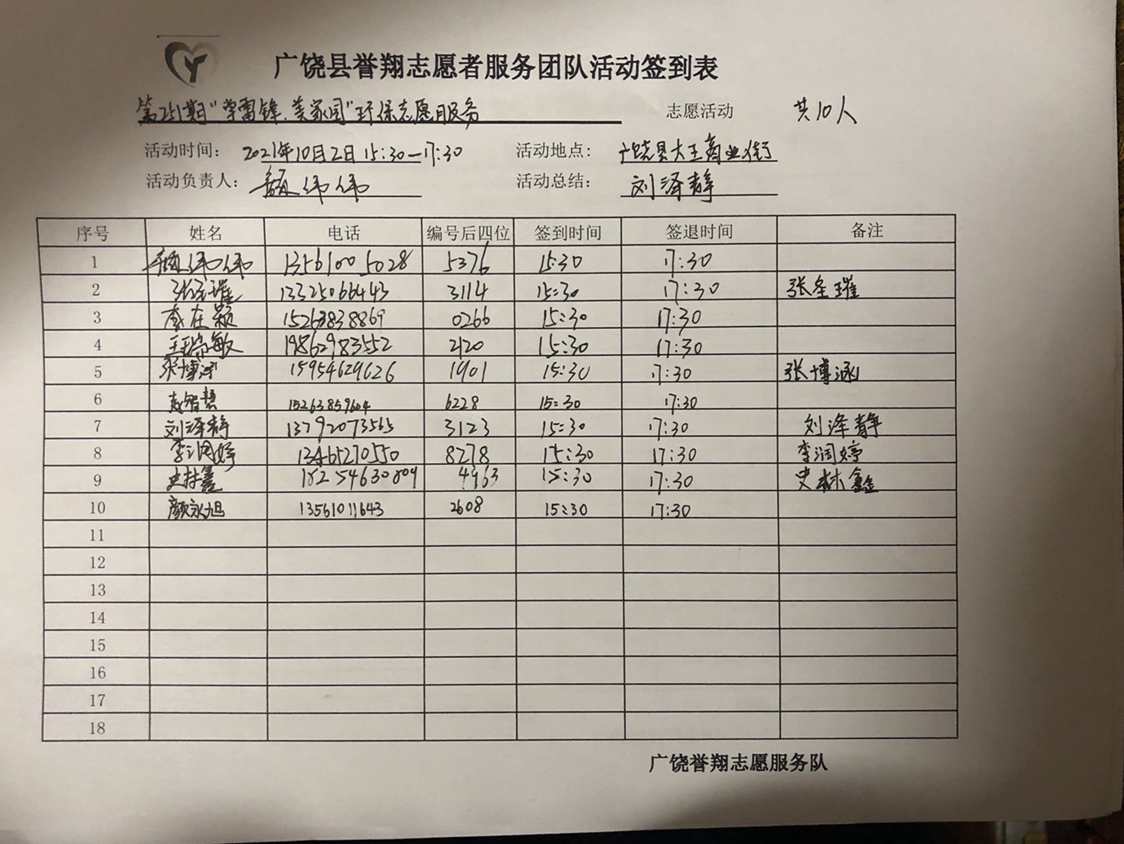 广饶县誉翔志愿者服务团队活动签到表
第251期"学雷锋、美家园"环保志愿服务 志愿活动 共10人
活动时间: 2021年10月2日 15:30—17:30 活动地点: 广饶县大王商业街
活动负责人: 颜伟伟 活动总结: 刘泽静
序号 姓名 电话 编号后四位 签到时间 签退时间 备注
1 颜伟伟 13561005028 5376 15:30 17:30
2 张圣璀 13325066443 3114 15:30 17:30 张圣璀
3 李在颖 15263838869 0266 15:30 17:30
4 王瑞敏 19862983552 2120 15:30 17:30
5 张博涵 15954629626 1901 15:30 17:30 张博涵
6 袁智慧 15263859604 6228 15:30 17:30
7 刘泽静 13792073565 3123 15:30 17:30 刘泽静
8 李润婷 13465270550 8278 15:30 17:30 李润婷
9 史林鑫 15254630809 4963 15:30 17:30 史林鑫
10 颜永旭 13561011643 2608 15:30 17:30
11
12
13
14
15
16
17
18
广饶誉翔志愿服务队